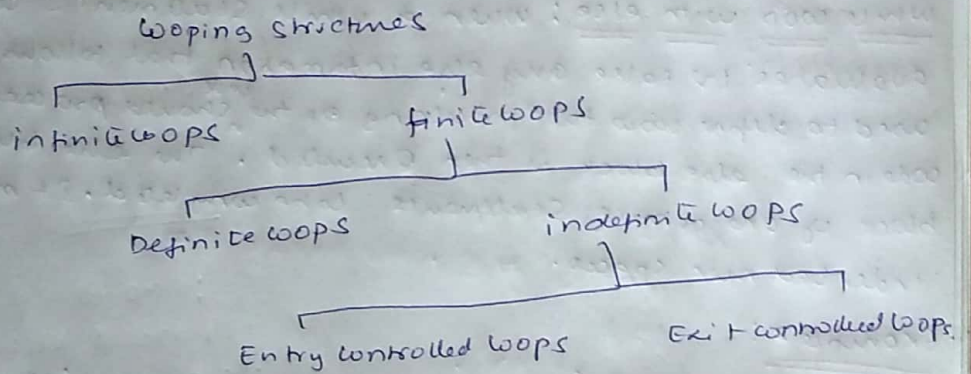 Looping structures
infinite loops
finite loops
Definite loops
indefinite loops
Entry controlled loops
Exit controlled loops.